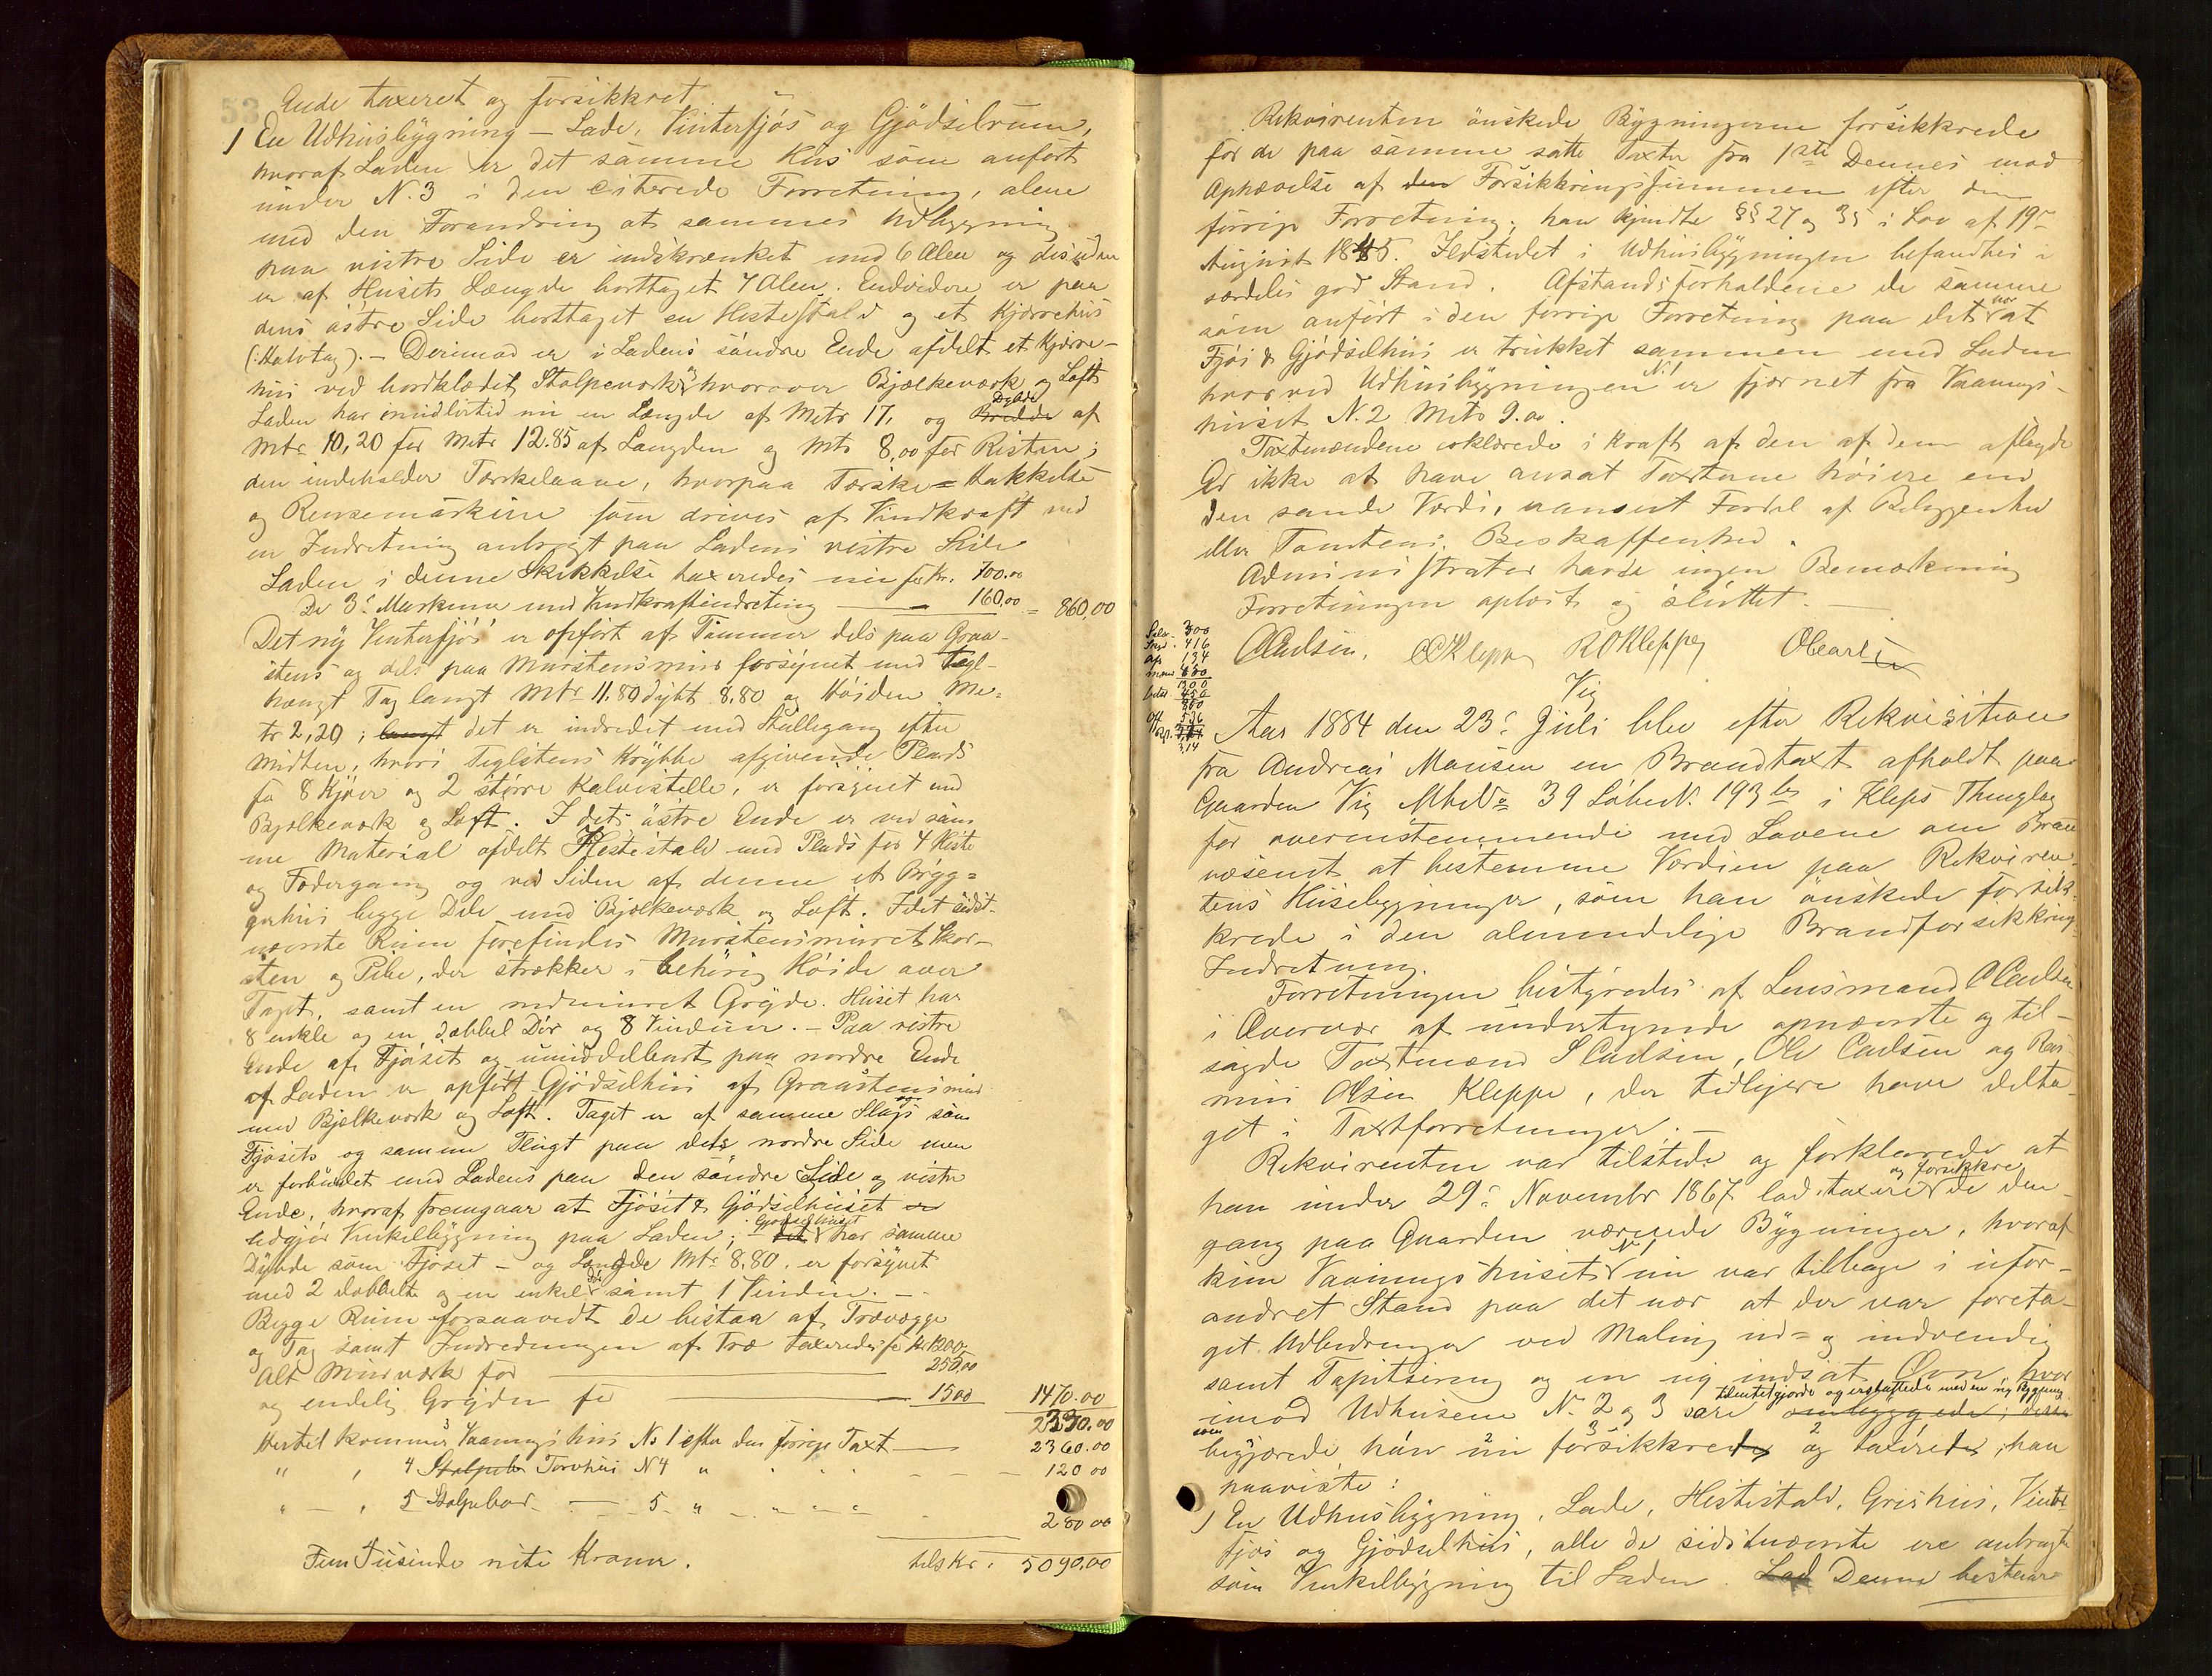 53
Ende taxeret og forsikkret
1 En Udhusbygning – Lade, Vinterfjös og Gjödselrum,
hvoraf Laden er det samme Hus som anfört
under N. 3 i den citerede Forretning, alene
med den Forandring at sammes Udbygning
paa vestre Side er indskrænket med 6 Alen og desuden
er af Husets Længde borttaget 7 Alen. Endvidere er paa
dens östre Side borttaget en Hestestald og et Kjörrehus
(: Halvtag). – Derimod er i Ladens söndre Ende afdelt et Kjörre-
hus ved bordklædet Stolpeværk, hvorover Bjælkeværk og Loft.
Laden har imidlertid nu en Længde af Metr 17, og Dybde Bredde af
Mtr. 10,20 for Metr 12.85 af Længden og Mtr 8,00 for Resten;
den indeholder Tærskelaave, hvorpaa Tærske= Hakkelse
og Rensemaskine som drives af Vindkraft ved
en Indretning anbragt paa Ladens vestre Side
Laden i denne Skikkelse taxeredes nu for Kr. 700.00
De 3 Maskiner med Vindkraftindretning — 160,00 = 860,00
Det ny Vinterfjös er opfört af Tömmer dels paa Graa-
stens og dels paa Murstensmur forsynet med Tegl-
hængt Tag langt Mtr 11,80 dybt 8,80 og Höiden Me-
tr 2,20; langt det er indredet med Stallegang efter
Midten, hvori Teglstens Krybbe afgivende Plads
for 8 Kjöer og 2 större Kalvestelle, er forsynet med
Bjælkeværk og Loft. I det östre Ende er ved sam
me Material afdelt Hestestald med Plads for 4 Heste
og Fodergang og ved Siden af denne et Brygg=
gerhus begge Dele med Bjælkeværk og Loft. I det sidst-
nævnte Rum forefindes Murstensmuret Skor-
sten og Pibe, der strækker i behörig Höide over
Taget, samt en indmuret Gryde. Huset har
8 enkle og en dobbel Dör og 8 Vinduer. – Paa vestre
Ende af Fjöset og umiddelbart paa nordre Ende
af Laden er opfört Gjödselhus af Graastensmur
med Bjelkeværk og Loft. Taget er af samme Slags som
Fjösets og samme Flugt paa dets nordre Side men
er forbundet med Ladens paa den söndre Side og vestre
Ende, hvoraf fremgaar at Fjöset & Gjödselhuset er
udgjör Vinkelbygning paa Laden; det Gjødselhuset har samme
Dybde som Fjöset – og Længde Mtr 8,80. er forsynet
med 2 dobbelte og en enkel Dör samt 1 Vindu. –
Begge Rum forsaavidt de bestaa af Trævægge
og Tag samt Indredningen af Træ taxeredes for Kr 1200,
Alt Murværk for — 255,00
og endelig Gryden for — 1500 1470.00
2330.00
Hertil kommer 3 Vaaningshus No 1 efter den forrige Taxt — 2360.00
" , 4 Stolpeb Torvhus N 4 " " " " — — 120 00
" – , 5 Stolpebod — 5 " " " " 280 00
Fem Tusinde nitti Kroner. tils Kr. 5090,00
Rekvirenten önskede Bygningerne forsikkrede
for de paa samme satte Taxter fra 1ste Dennes mod
Ophævelse af den Forsikkringssummen efter den
forrige Forretning; han kjendte §§ 27 og 35 i Lov af 19de
August 1845. Ildstedet i Udhusbygningen befandtes i
særdeles god Stand. Afstandsforholdene de samme
som anfört i den forrige Forretning paa det nær at
Fjös & Gjödselhus er trukket sammen med Laden
hvorved Udhusbygningen N. 1 er fjærnet fra Vaanings-
huset N. 2 Metr 9.00.
Taxtmændene erklærede i Kraft af den af dem aflagde
Ed ikke at have ansat Taxterne höiere end
den sande Værdi, uanseet Fordel af Beliggenhed
eller Tomtens Beskaffenhed.
Administrator havde ingen Bemærkning
Forretningen oplæst og sluttet. —
OCarlsen. OCKleppe ROKleppe OCarlsen
Vig
Aar 1884 den 23de Juli blev efter Rekvisition
fra Andreas Monsen en Brandtaxt afholdt paa
Gaarden Vig MNo 39 Löbe N. 193 b i Kleps Thinglag
for overensstemmende med Lovene om Brand
væsenet at bestemme Værdien paa Rekviren-
tens Husebygninger, som han önskede forsik-
krede i den almindelige Brandforsikkring
Indretning.
Forretningen bestyredes af Lensmand OCarlsen
i Overvær af undertegnede opnævnte og til-
sagde Taxtmænd S Carlsen, Ole Carlsen og Ras-
mus Olsen Kleppe, der tidligere have delta
get i Taxtforretninger. –
Rekvirenten var tilstede og forklarede at
han under 29de November 1867 lod taxere og forsikkre de den-
gang paa Gaarden værende Bygninger, hvoraf
kun Vaaningshuset N 1 nu var tilbage i ufor-
andret Stand paa det nær at der var foreta-
get Udbedringer ved Maling ud= og indvendig
samt Tapitsering og en ny indsat Ovn hvor
imod Udhusene N. 2 og 3 vare ombyggede; disse tilintetgjorde og erstattede med en ny Bygning
som begjærede han nu 3 forsikkrede 2 og taxerede; han
paaviste:
1 En Udhusbygning, Lade, Hestestald, Grishus, Vinter
fjös og Gjödselhus, alle de sidstnævnte ere anbragte
som Vinkelbygning til Laden. Lad Denne bestaar